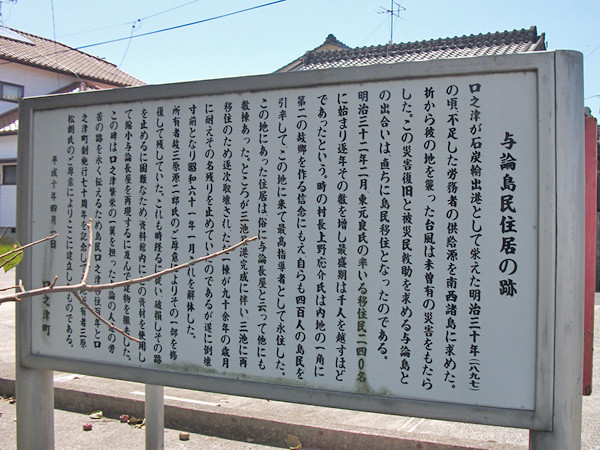 与論島民住居の跡
口之津が石炭輸出港として栄えた明治三十年(一八九七)
の頃、不足した労務者の供給源を南西諸島に求めた。
折から彼の地を襲った台風は未曽有の災害をもたら
した。この災害復旧と被災民救助を求める与論島と
の出合いは直ちに島民移住となったのである。
明治三十二年二月東元良氏の率いる移住民二四0名
に始まり逐年その数を増し最盛期は千人を越すほど
であったという。時の村長上野応介氏は内地の一角に
第二の故郷を作る信念にもえ自らも四百人の島民を
引率して、この地に来て最高指導者として永住した。
この地にあった住居は俗に与論長屋と云って他にも
数棟あった。ところが三池築港完成に伴い三池に再
移住のため逐次取壊されこの一棟が九十余年の歳月
に耐えその名残りを止めていたのであるが遂に倒壊
寸前となり昭和六十一年一月これを解体した。
所有者故三原源二郎氏のご厚意によりその一部を修
復して残していた。これも時経るに従い破損しその跡
を止めるに困難なため資料館内にその資材を使用し
て縮小与論長屋を再現するに及んだ建物を撤去した。
この碑は口之津繁栄の一翼を担った与論の人々の労
苦の跡を永く伝えるため島民口之津移住百年と口
之津町制施行七十周年を記念して所有者三原
松朗氏のご厚意によりここに建立したものである。
平成十年四月一日 口之津町